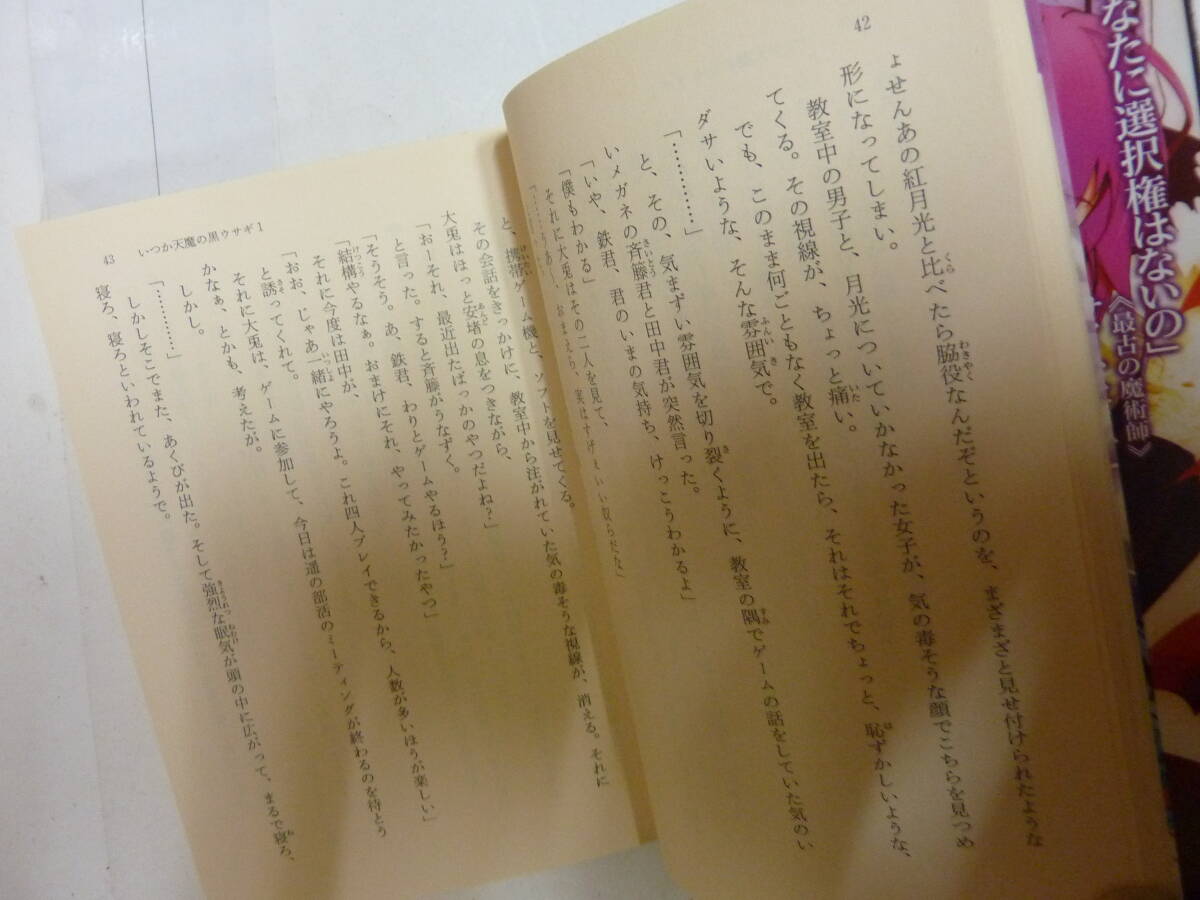 42
ょせんあの紅月光と比べたら脇役なんだぞというのを、まざまざと見せ付けられたような
形になってしまい。
教室中の男子と、月光についていかなかった女子が、気の毒そうな顔でこちらを見つめ
てくる。その視線が、ちょっと痛い。
でも、このまま何ごともなく教室を出たら、それはそれでちょっと、恥ずかしいような、
ダサいような、そんな雰囲気で。
「…………」
と、その、気まずい雰囲気を切り裂くように、教室の隅でゲームの話をしていた気のい
いメガネの斉藤君と田中君が突然言った。
「いや、鉄君、君のいまの気持ち、けっこうわかるよ」
「僕もわかる」
それに大兎はその二人を見て、
おまえら、実はすげぇいい奴らだな」
と、携帯ゲーム機と、ソフトを見せてくる。
その会話をきっかけに、教室中から注がれていた気の毒そうな視線が、消える。それに
大兎はほっと安堵の息をつきながら、
「おーそれ、最近出たばっかのやつだよね?」
と言った。すると斉藤がうなずく。
「そうそう。あ、鉄君、わりとゲームやるほう?」
「結構やるなぁ。おまけにそれ、やってみたかったやつ」
それに今度は田中が、
「おお、じゃあ一緒にやろうよ。これ四人プレイできるから、人数が多いほうが楽しい」
と誘ってくれて。
それに大兎は、ゲームに参加して、今日は遥の部活のミーティングが終わるのを待とう
かなぁ、とかも、考えたが。
しかし。
「…………」
しかしそこでまた、あくびが出た。そして強烈な眠気が頭の中に広がって、まるで寝ろ、
寝ろ、寝ろといわれているようで。
43 いつか天魔の黒ウサギ1
なたに選択権はないの」
《最古の魔術師》